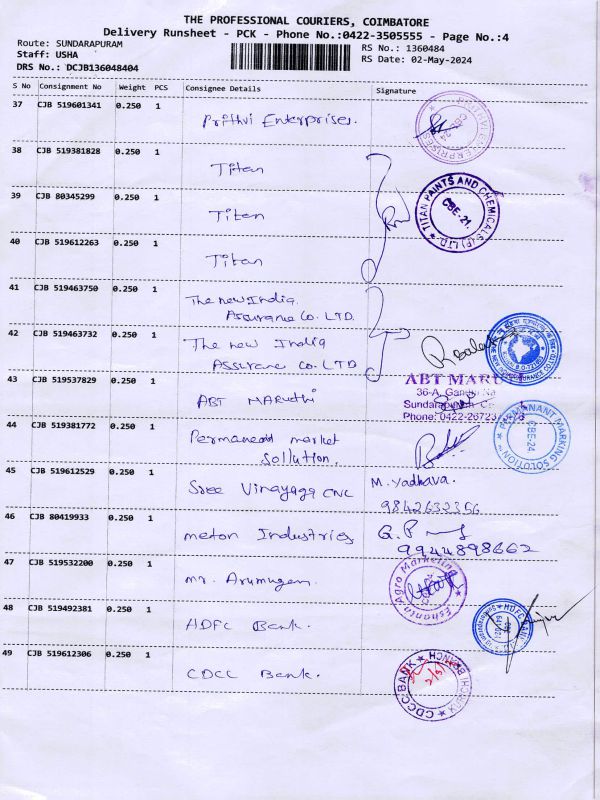 THE PROFESSIONAL COURIERS, COIMBATORE
Delivery Runsheet - PCK - Phone No.:0422-3505555 - Page No.:4
Route: SUNDARAPURAM
Staff: USHA
DRS No.: DCJB136048404
RS No.: 1360484
RS Date: 02-May-2024
S No Consignment No Weight PCS Consignee Details Signature
37 CJB 519601341 0.250 1 Prithvi Enterprises.
38 CJB 519381828 0.250 1 Titan
39 CJB 80345299 0.250 1 Titan
TITAN PAINTS AND CHEMICALS (P) LTD.
CBE-21.
40 CJB 519612263 0.250 1 Titan
41 CJB 519463750 0.250 1 The new India
Assurance Co. LTD.
42 CJB 519463732 0.250 1 The new India
Assurance Co. LTD
43 CJB 519537829 0.250 1 ABT Maruthi
ABT MARU
36-A, Gandhi Na
Phone: 0422-26723
44 CJB 519381772 0.250 1 Permanant market
Sollution.
PERMANANT MARKING SOLUTION
CBE-24
45 CJB 519612529 0.250 1 Sree Vinayaga CNC M. Yadhava.
9842632356
46 CJB 80419933 0.250 1 meton Industries G.P
9944898662
47 CJB 519532200 0.250 1 Mr. Arumugam.
Eshanta Agro Marketing
48 CJB 519492381 0.250 1 HDFC Bank.
HDFC BANK
49 CJB 519612306 0.250 1 CDCC Bank.
CDCC BANK
KURICHI BRANCH